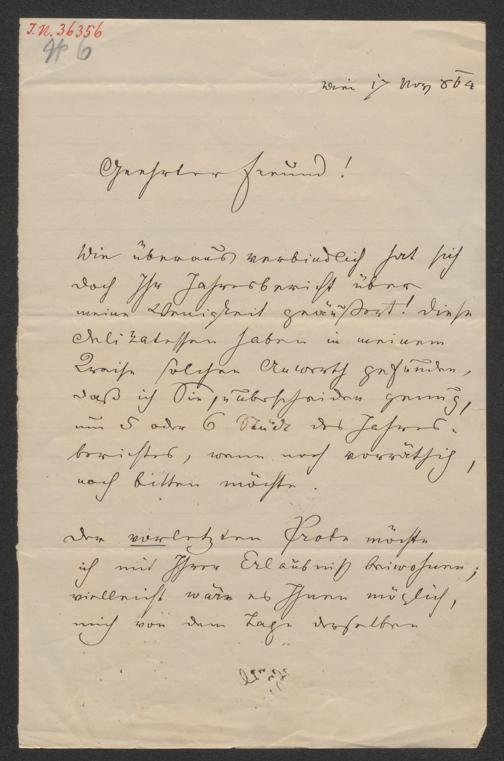 J.N. 36356
Wien 17 Nov 864
Geehrter Freund!
Wie überaus verbindlich hat sich
doch Ihr Jahresbericht über
meine Wenigkeit geäußert! Diese
Delikatessen haben in meinem
Kreise solchen Anwerth gefunden,
daß ich Sie, unbescheiden genug,
um 5 oder 6 Stück des Jahres-
berichtes, wenn noch vorräthig,
noch bitten möchte.
Der vorletzten Probe möchte
ich mit Ihrer Erlaubniß beiwohnen;
vielleicht wäre es Ihnen möglich,
mich von dem Tage derselben